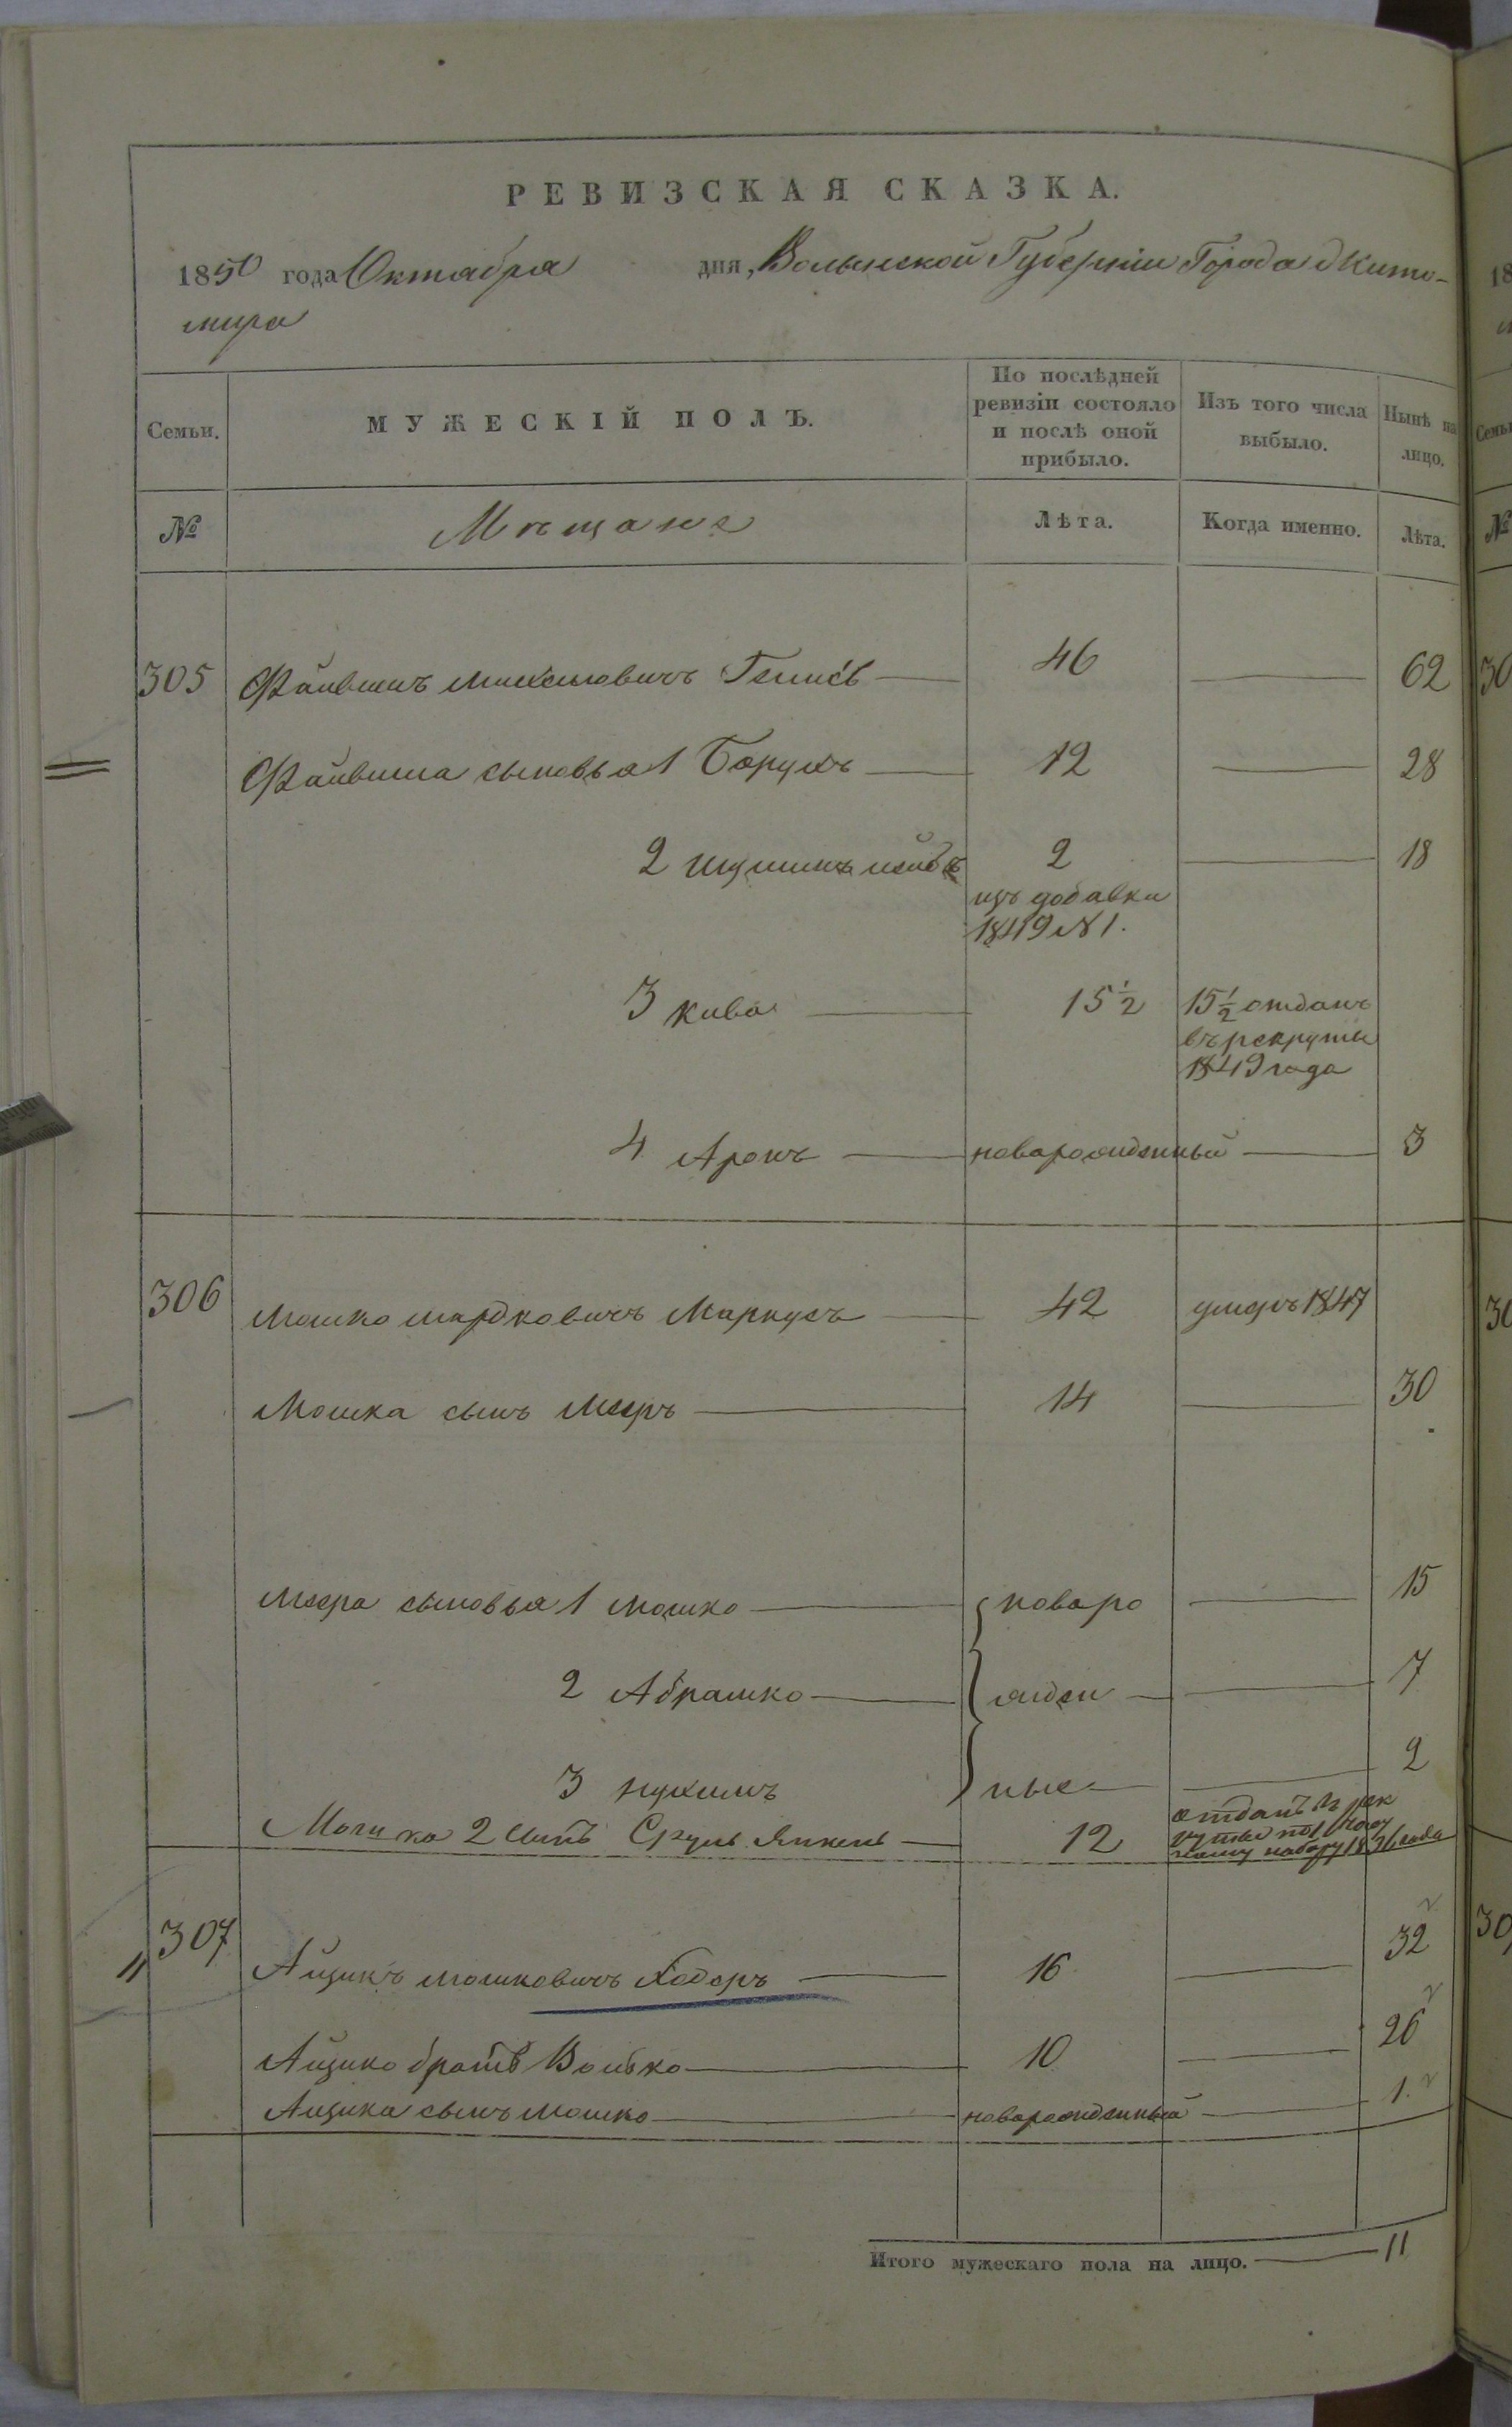 РЕВИЗСКАЯ СКАЗКА.
1850 года Октября дня, Волынской Губерніи Города Жито-
мира
Семьи. МУЖЕСКІЙ ПОЛЪ. По послѣдней ревизіи состояло и послѣ оной прибыло. Изъ того числа выбыло. Нынѣ на лицо.
№ Мѣщане Лѣта. Когда именно. Лѣта.
305 Файвишъ 46 62
Файвиша сыновья 1 Борухъ 12 28
2 2 18
изъ добавки
1849 № 1.
3 Кива 15½ 15½ отданъ
въ рекруты
1849 года
4 Аронъ новарожденный 3
306 Мошко Мардковичъ Маркусъ 42 умеръ 1847
Мошка сынъ Мееръ 14 30
Меера сыновья 1 Мошко новаро 15
2 Абрашко жден 7
3 Нухимъ ные 2
Мошка 2 сынъ Сруль Янкель 12 отданъ въ рек
руты по
набору 1836 года
307 Айзикъ Мошковичъ Ходоръ 16 32
Айзика братъ Волько 10 26
Айзика сынъ Мошко новарожденный 1.
Итого мужескаго пола на лицо. 11